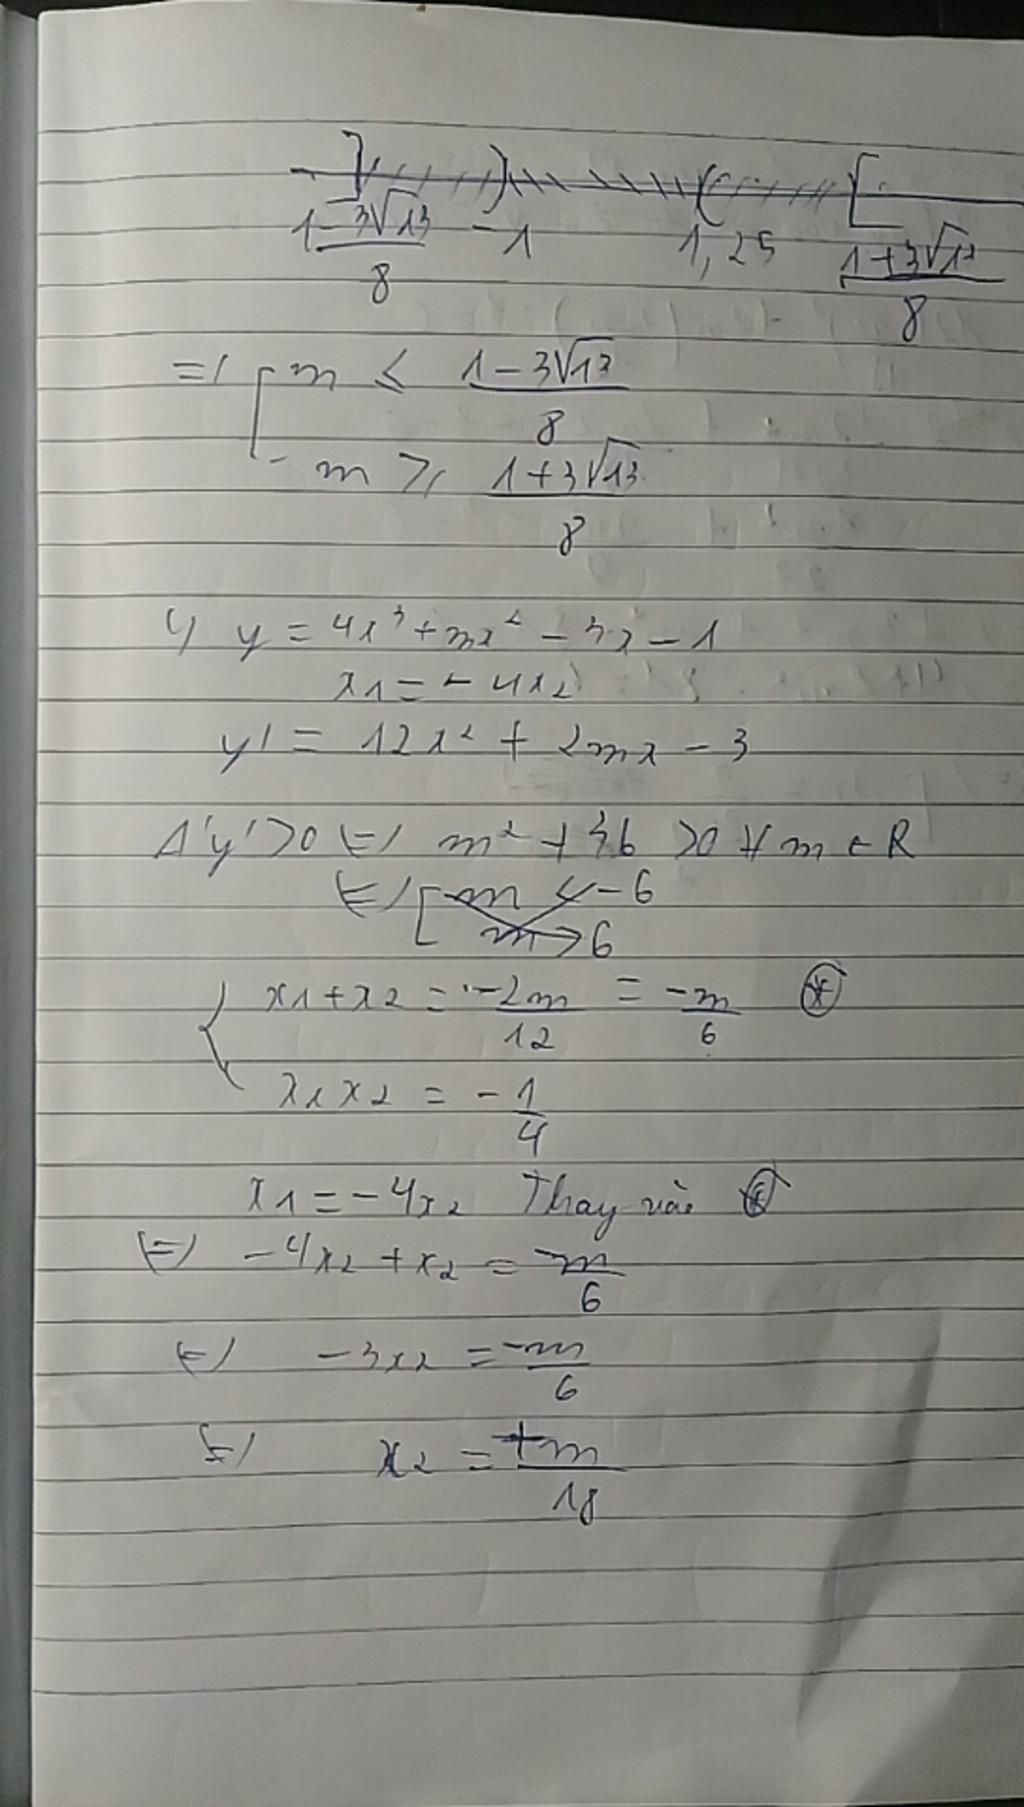 1-3√13/8   -1   1,25   1+3√13/8
=) [ m ≤ 1-3√13/8
m ≥ 1+3√13/8
4) y = 4x³ + mx² - 3x - 1
x1 = -4x2
y' = 12x² + 2mx - 3
Δ'y' >0 (=) m² + 36 >0 ∀ m ∈ R
(=) [ m < -6
m > 6
{ x1+x2 = -2m/12 = -m/6 (*)
x1x2 = -1/4
x1 = -4x2 Thay vào (*)
(=) -4x2 + x2 = -m/6
(=) -3x2 = -m/6
(=) x2 = +m/18